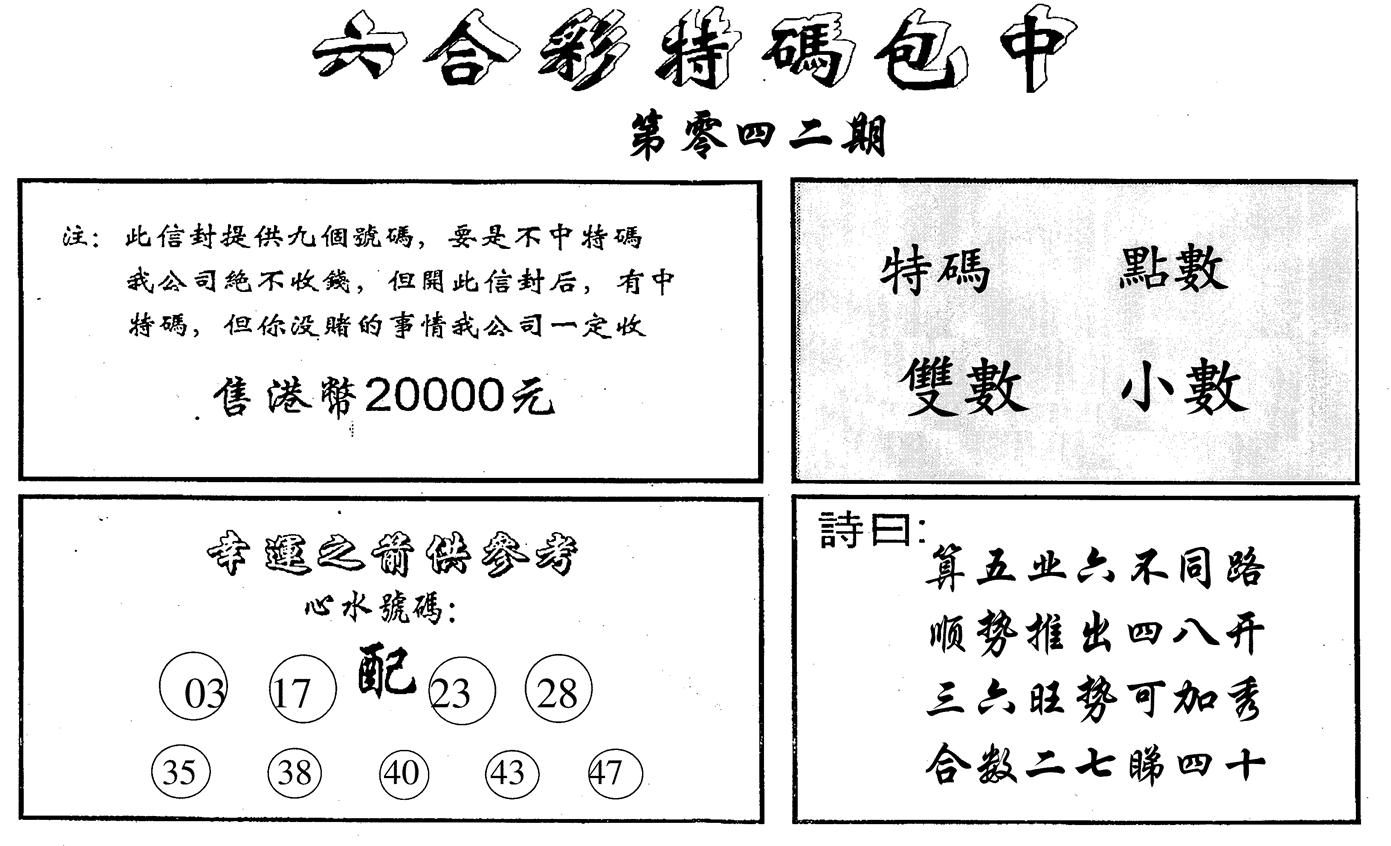 六合彩特碼包中
第零四二期
注：此信封提供九個號碼，要是不中特碼
我公司絕不收錢，但開此信封后，有中
特碼，但你没賭的事情我公司一定收
售港幣20000元
特碼 點數
雙數 小數
幸運之箭供參考
心水號碼：
03 17 配 23 28
35 38 40 43 47
詩曰：
算五业六不同路
顺势推出四八开
三六旺势可加秀
合数二七睇四十